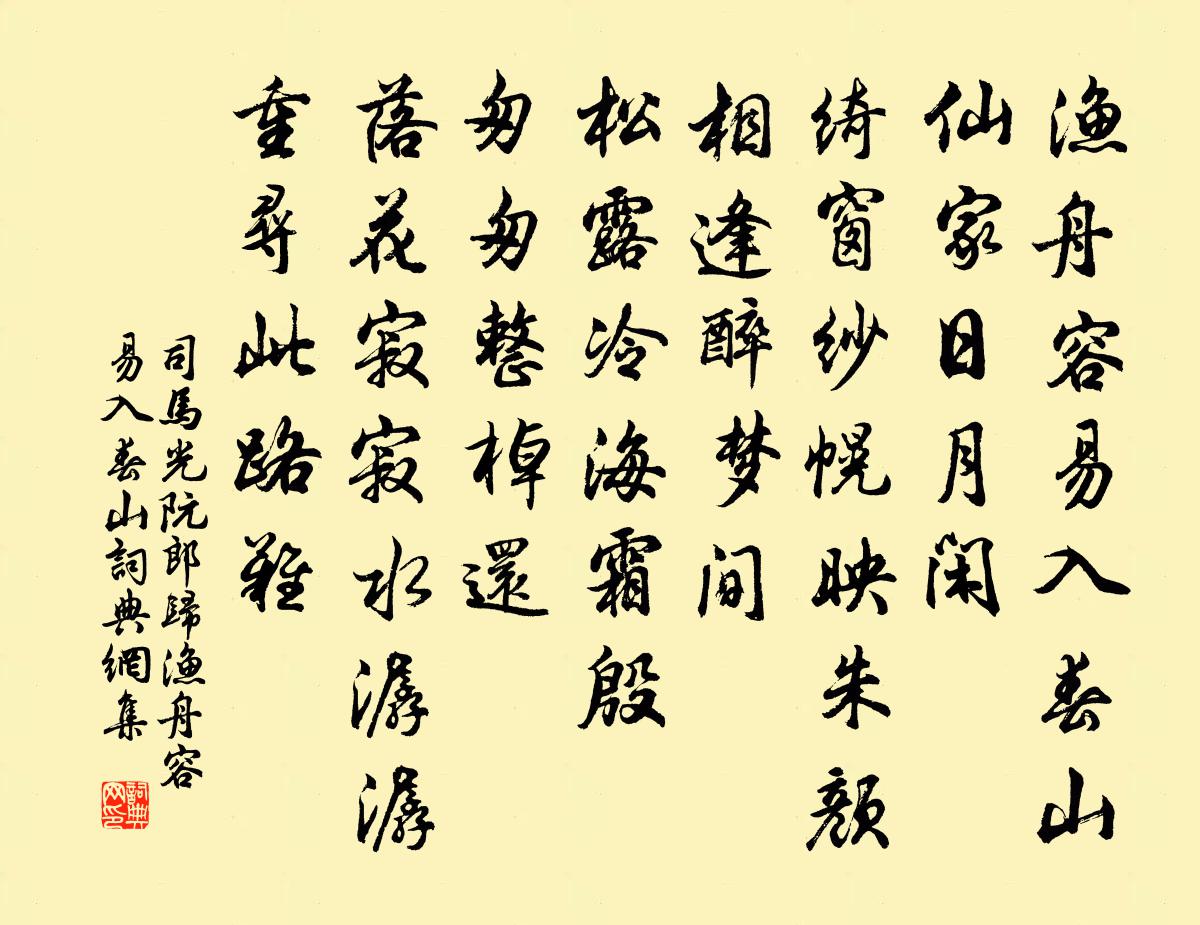 渔舟容易入春山
仙家日月闲
绮窗纱幌映朱颜
相逢醉梦间
松露冷海霜殷
匆匆整棹還
落花寂寂水潺潺
重尋此路難
司馬光阮郎歸渔舟容
易入春山詞典網集
詞典
网印